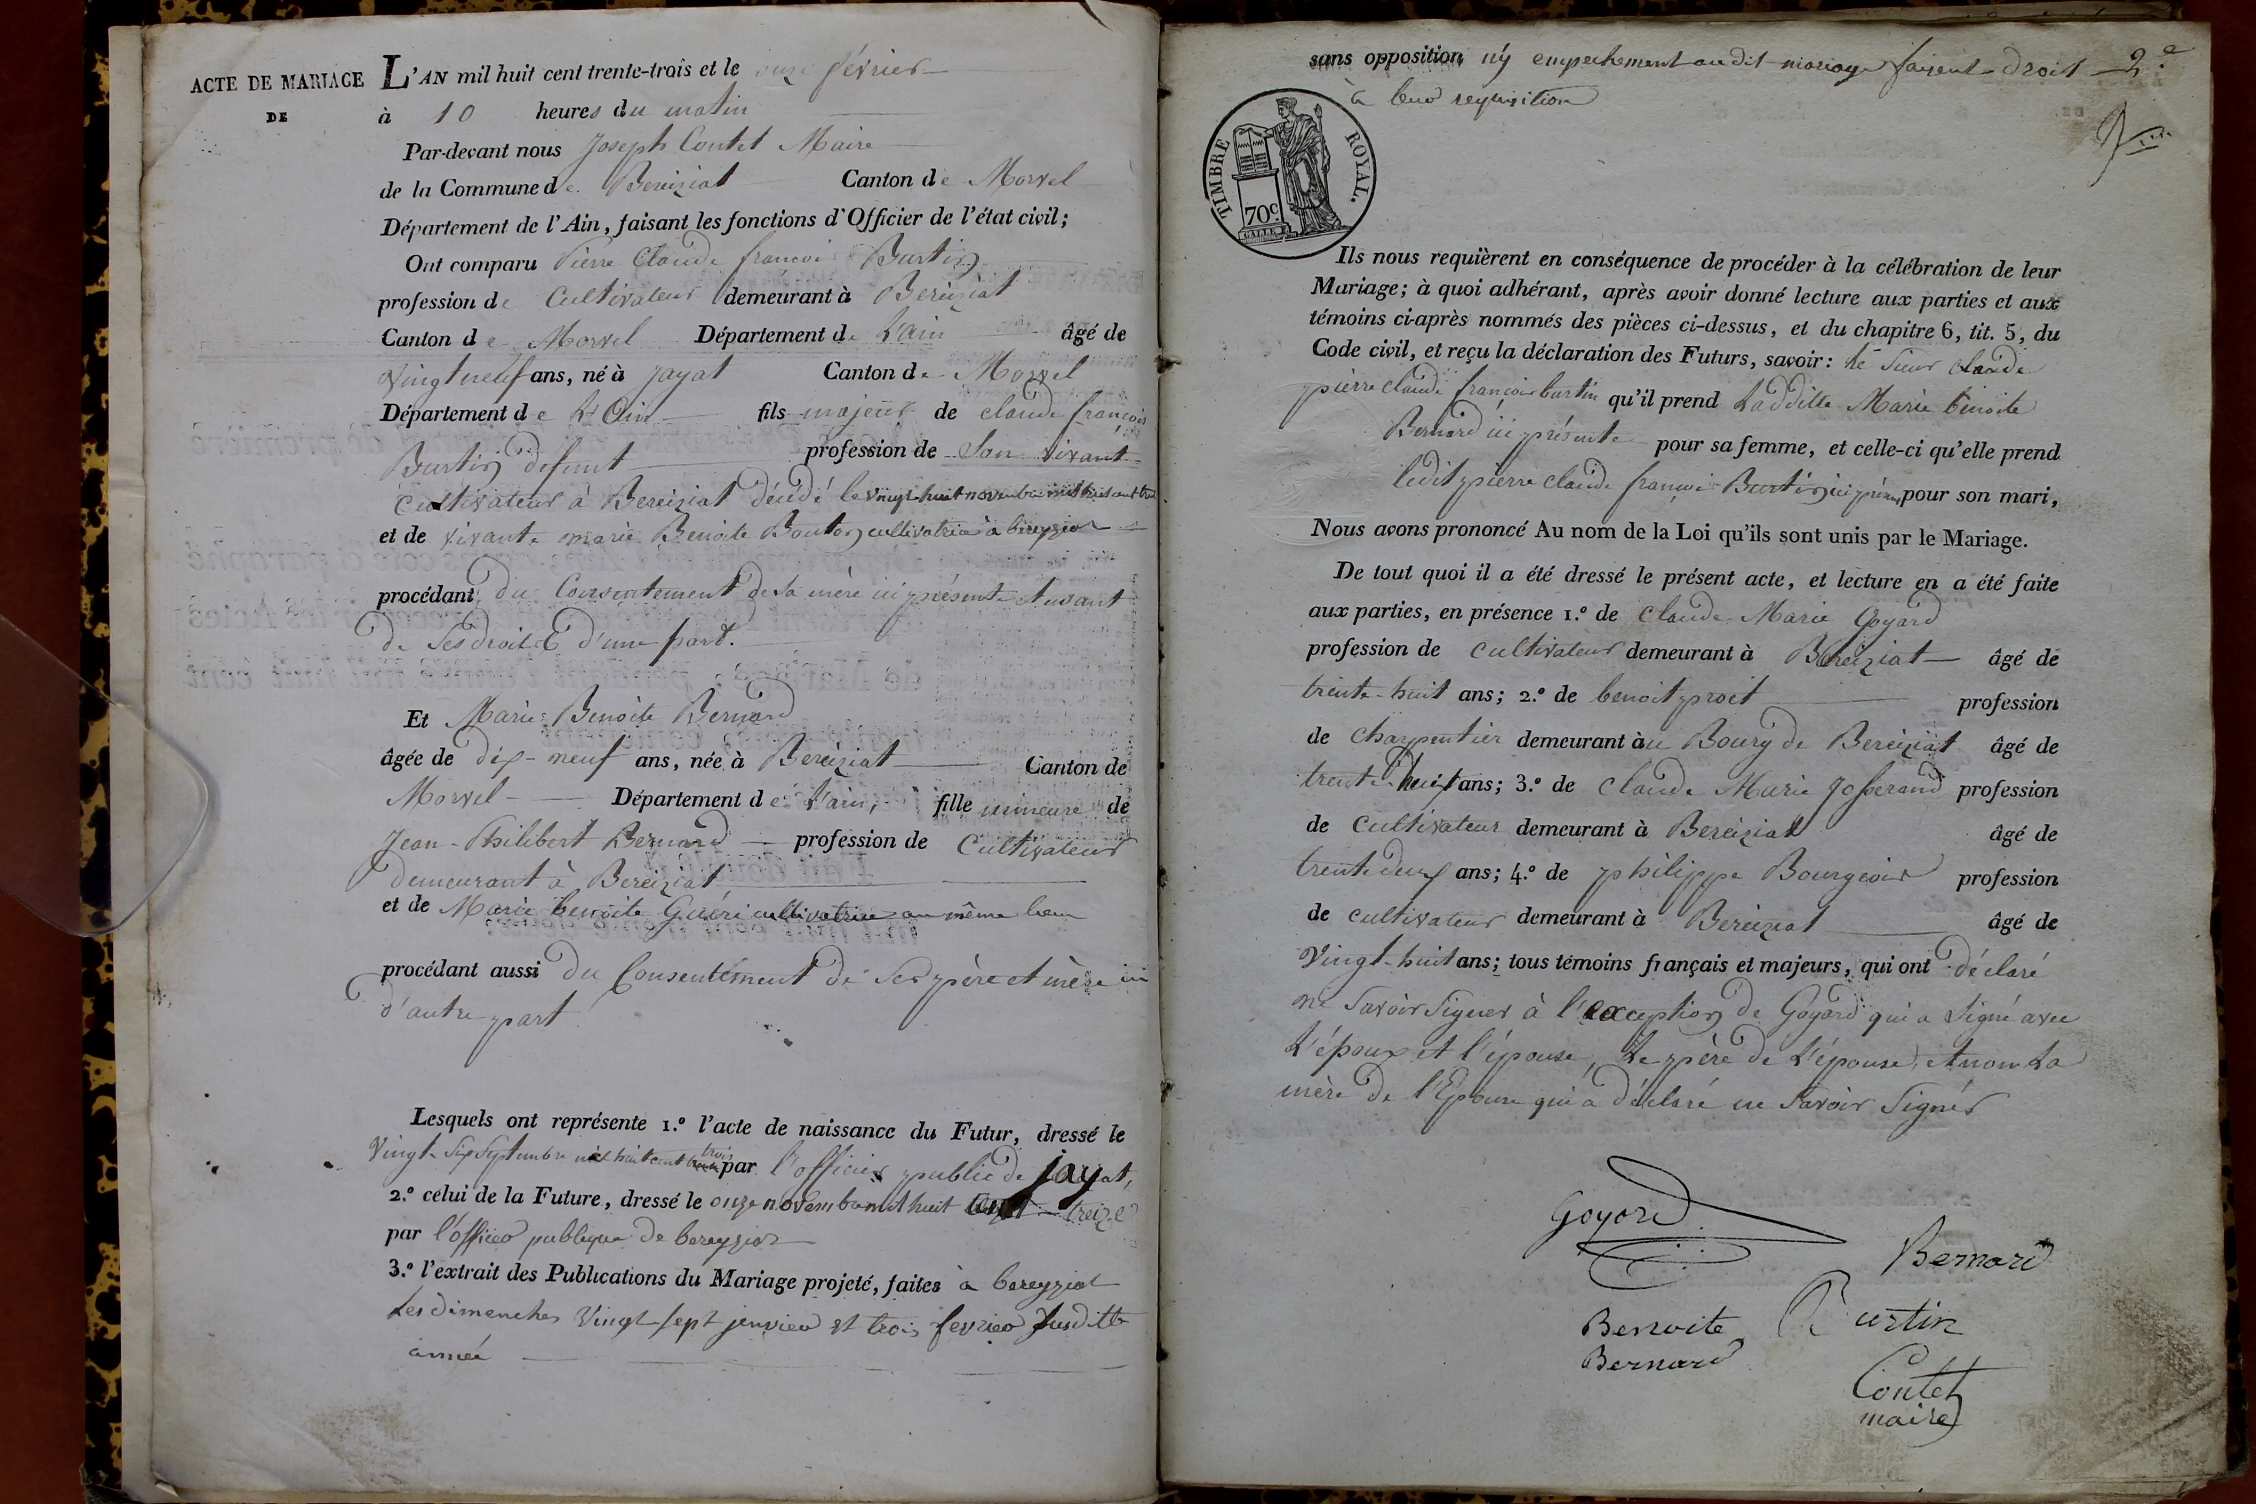 ACTE DE MARIAGE
DE
L'AN mil huit cent trente-trois et le onze février
à 10 heures du matin
Par-devant nous Joseph Contet Maire
de la Commune de Bereiziat Canton de Morvel
Département de l'Ain, faisant les fonctions d'Officier de l'état civil;
Ont comparu Pierre Claude françois Burtin
profession de Cultivateur demeurant à Bereiziat
Canton de Morvel Département de L'ain âgé de
Vingt neuf ans, né à Jayat Canton de Morvel
Département de L'Ain fils majeur de claude françois
Burtin defunt profession de Son vivant
Cultivateur à Bereiziat décédé le vingt huit novembre mil huit cent
et de vivante marie Benoite Bouton cultivatrice à bereyziat
procédant du Consentement de Sa mère ici présente et usant
de Ses droits d'une part.
Et Marie Benoite Bernard
âgée de dix-neuf ans, née à Bereiziat Canton de
Morvel Département de L'ain, fille mineure de
Jean-Philibert Bernard profession de Cultivateur
demeurant à Bereiziat
et de Marie benoite Guéri cultivatrice au même lieu
procédant aussi du Consentement de Ses père et mère ici
d'autre part
Lesquels ont représente 1.º l'acte de naissance du Futur, dressé le
Vingt Six Septembre mil huit cent trois par l'officier public de jayat,
2.º celui de la Future, dressé le onze novembre mil huit cent treize
par l'officier publique de bereyziat
3.º l'extrait des Publications du Mariage projeté, faites à bereyziat
Les dimenches Vingt-sept jenvier et trois fevrier Susditte
année
sans opposition n'y empechement audit mariage faisent droit 2.e
à leur requisition
TIMBRE ROYAL.
70c.
Ils nous requièrent en conséquence de procéder à la célébration de leur
Mariage; à quoi adhérant, après avoir donné lecture aux parties et aux
témoins ci-après nommés des pièces ci-dessus, et du chapitre 6, tit. 5, du
Code civil, et reçu la déclaration des Futurs, savoir: Le Sieur claude
pierre claude françois burtin qu'il prend Laditte Marie benoite
Bernard ici présente pour sa femme, et celle-ci qu'elle prend
ledit pierre claude françois Burtin ici présent pour son mari,
Nous avons prononcé Au nom de la Loi qu'ils sont unis par le Mariage.
De tout quoi il a été dressé le présent acte, et lecture en a été faite
aux parties, en présence 1.º de Claude Marie Goyard
profession de cultivateur demeurant à Bereiziat âgé de
trente-huit ans; 2.º de benoit proit profession
de charpentier demeurant au Bourg de Bereiziat âgé de
trente huit ans; 3.º de Claude Marie Josserand profession
de cultivateur demeurant à Bereiziat âgé de
trente deux ans; 4.º de philippe Bourgeois profession
de cultivateur demeurant à Bereiziat âgé de
Vingt-huit ans; tous témoins français et majeurs, qui ont déclaré
ne Savoir Signer à l'exception de Goyard qui a Signé avec
L'époux et l'épouse, Le père de L'épouse, et non La
mère de l'Epouse qui a déclaré ne Savoir Signer
Goyard
Bernard
Benoite
Bernard
Burtin
Contet
maire